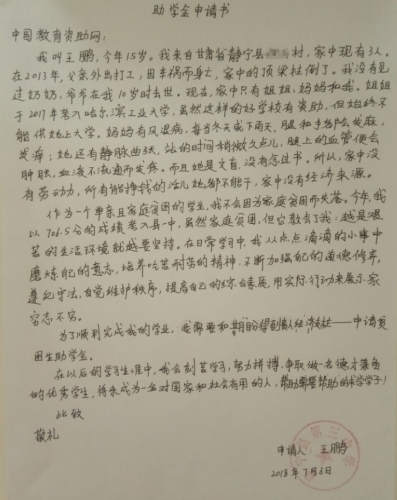 助学金申请书
中国教育资助网:
我叫王鹏,今年15岁。我来自甘肃省静宁县村,家中现有3人。
在2013年,父亲外出打工,因车祸而身亡,家中的顶梁柱倒了。我没有见
过奶奶,爷爷在我10岁时去世。现在,家中只有姐姐,妈妈和我。姐姐
于2017年考入哈尔滨工业大学,虽然这样的好学校有资助,但始终不
能供她上大学。妈妈有风湿病,每当冬天或下雨天,腿和手都会发麻,
发疼;她还有静脉曲张,站的时间稍微久点儿,腿上的血管便会
肿胀,血液不流通而发疼。而且她是文盲,没有念过书,所以,家中没
有劳动力,所有能挣钱的活儿她都不能干,家中没有经济来源。
作为一个单亲且家庭贫困的学生,我不会因为家庭贫困而失落。今年,我
以706.5分的成绩考入县一中,虽然家庭贫困,但它教会了我:越是艰
苦的生活环境就越要坚持。在日常学习中,我从点点滴滴的小事中
磨炼自己的意志,培养吃苦耐劳的精神,不断加强自己的道德修养,
遵纪守法,自觉维护秩序,提高自己的综合素质,用实际行动来展示家
穷志不穷。
为了顺利完成我的学业,我需要和期盼得到经济——申请贫
困生助学金。
在以后的学习生涯中,我会刻苦学习,努力拼搏,争取做一名德才兼备
的优秀学生,将来成为一名对国家和社会有用的人,帮助需要帮助的学子!
此致
敬礼
申请人 王鹏
2018年7月6日